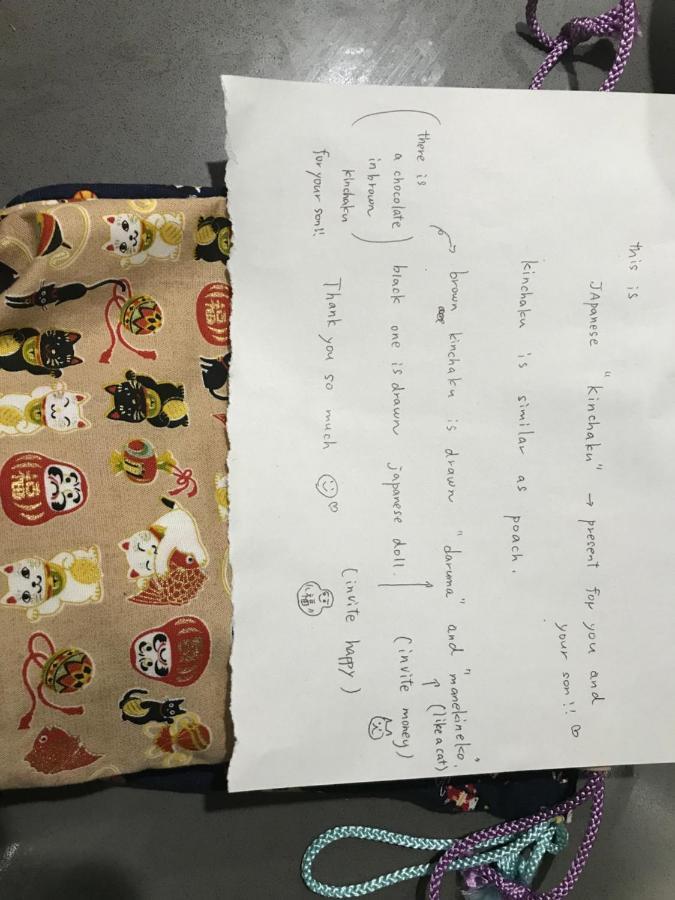 this is
JApanese "kinchaku" → present for you and
your son!! ♡
kinchaku is similar as poach.
brown kinchaku is drawn "daruma" and "manekineko".
(like a cat)
black one is drawn japanese doll.
(invite money)
(invite happy)
福
Thank you so much ☺♡
(there is
a chocolate
in brown
kinchaku)
for your son!!
福
福
福